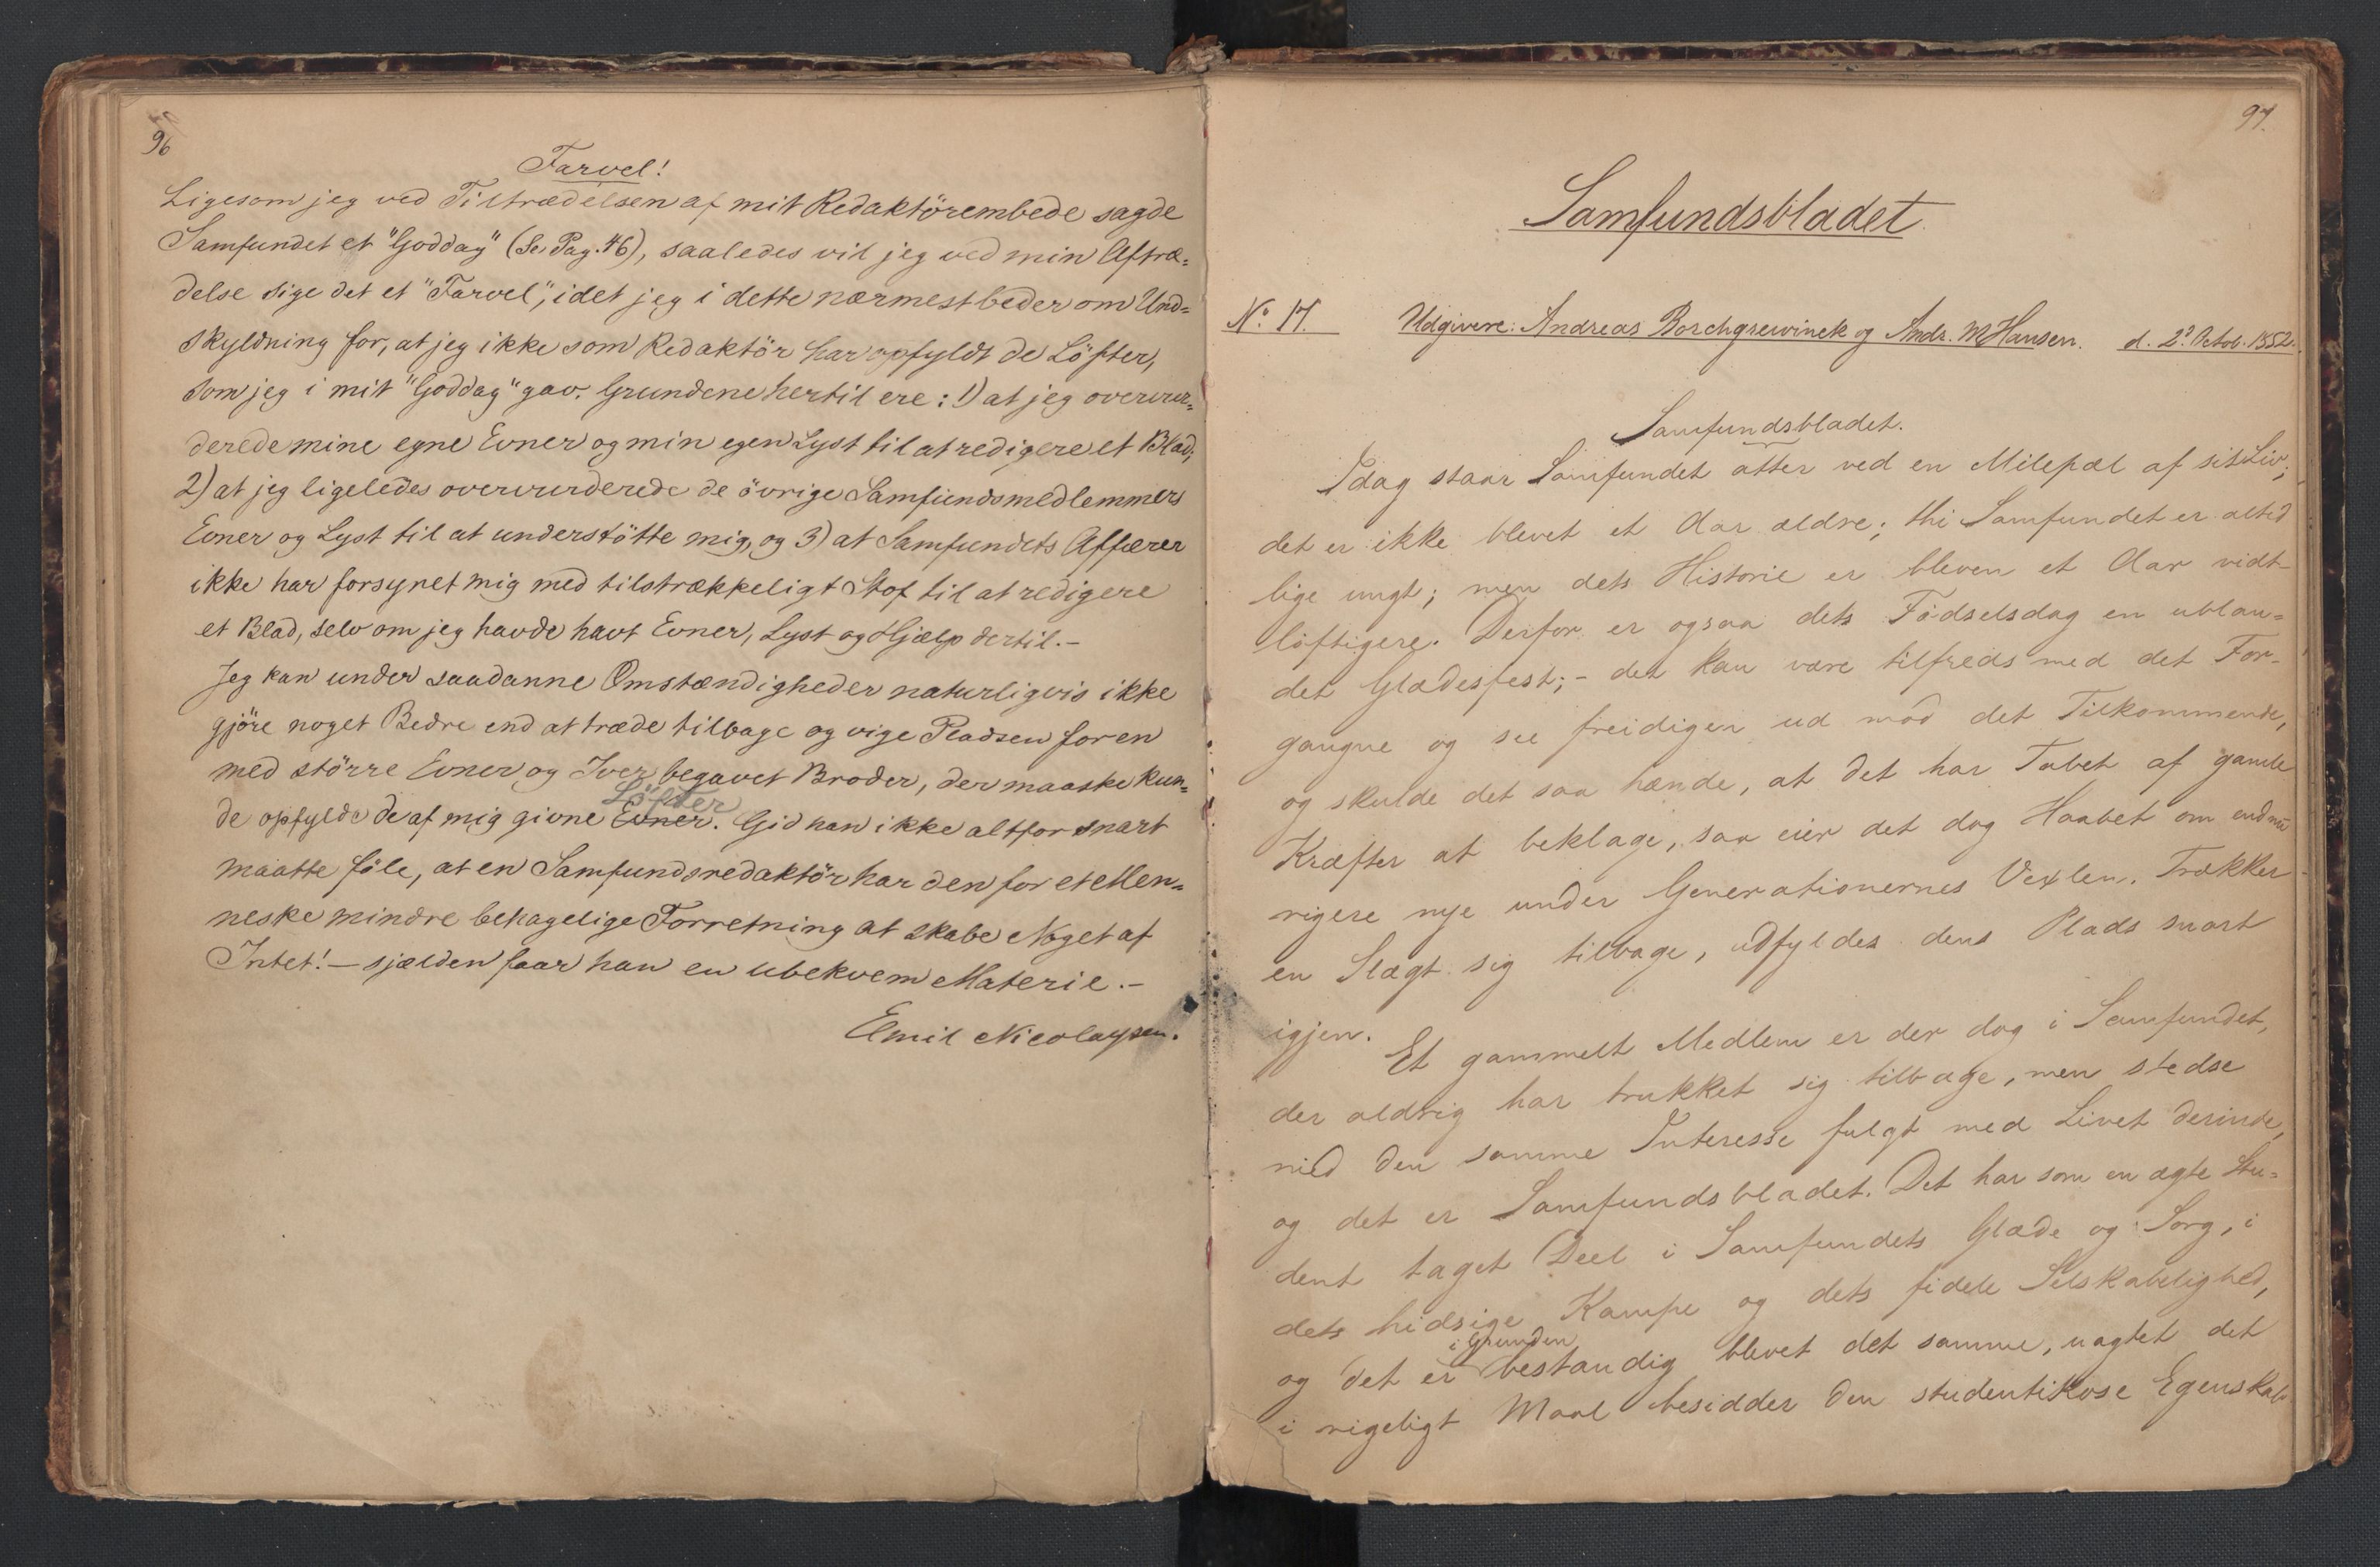 96
Farvel!
Ligesom jeg ved Tiltrædelsen af mit Redaktörembede sagde
Samfundet et "Goddag" (Se Pag. 46), saaledes vil jeg ved min Aftræ=
delse sige det et "Farvel", idet jeg i dette nærmest beder om Und=
skyldning for, at jeg ikke som Redaktör har opfyldt de Löfter,
som jeg i mit "Goddag" gav. Grundene hertil ere: 1) at jeg overvur=
derede mine egne Evner og min egen Lyst til at redigere et Blad;
2) at jeg ligeledes overvurderede de övrige Samfundsmedlemmers
Evner og Lyst til at understötte mig, og 3) at Samfundets Affærer
ikke har forsynet mig med tilstrækkeligt Stof til at redigere
et Blad, selv om jeg havde havt Evner, Lyst og Hjælp dertil.-
Jeg kan under saadanne Omstændigheder naturligvis ikke
gjöre noget Bedre end at træde tilbage og vige Pladsen for en
med större Evner og Iver begavet Broder, der maaske kun=
Löfter
de opfylde de af mig givne Evner. Gid han ikke altfor snart
maatte föle, at en Samfundsredaktör har den for et Men=
neske mindre behagelige Forretning at skabe Noget af
Intet! — sjælden faar han en ubekvem Materie.-
Emil Nicolaysen.
97.
Samfundsbladet.
No. 17. Udgivere: Andreas Borchgrewinck og Andr. M Hansen. d. 2? Octob. 1852.
Samfundsbladet.
Idag staar Samfundet atter ved en Milepæl af sit Liv;
det er ikke blevet et Aar ældre; thi Samfundet er altid
lige ungt; men dets Historie er bleven et Aar vidt-
löftigere. Derfor er ogsaa dets Födselsdag en ublan=
det Glædesfest; - det kan være tilfreds med det For-
gangne og see freidigen ud mod det Tilkommende,
og skulde det saa hænde, at det har Tabet af gamle
Kræfter at beklage, saa eier det dog Haabet om endnu
rigere nye under Generationernes Vexlen. Trækker
en Slægt sig tilbage, udfyldes dens Plads snart
igjen.
Et gammelt Medlem er der dog i Samfundet,
der aldrig har trukket sig tilbage, men stedse
med den samme Interesse fulgt med Livet derinde,
og det er Samfundsbladet. Det har som en ægte Stu=
dent taget Deel i Samfundets Glæde og Sorg, i
dets hidsige Kampe og dets fidele Selskabelighed,
i Grunden
og det er bestandig blevet det samme, uagtet det
i rigeligt Maal besidder den studentikose Egenskab